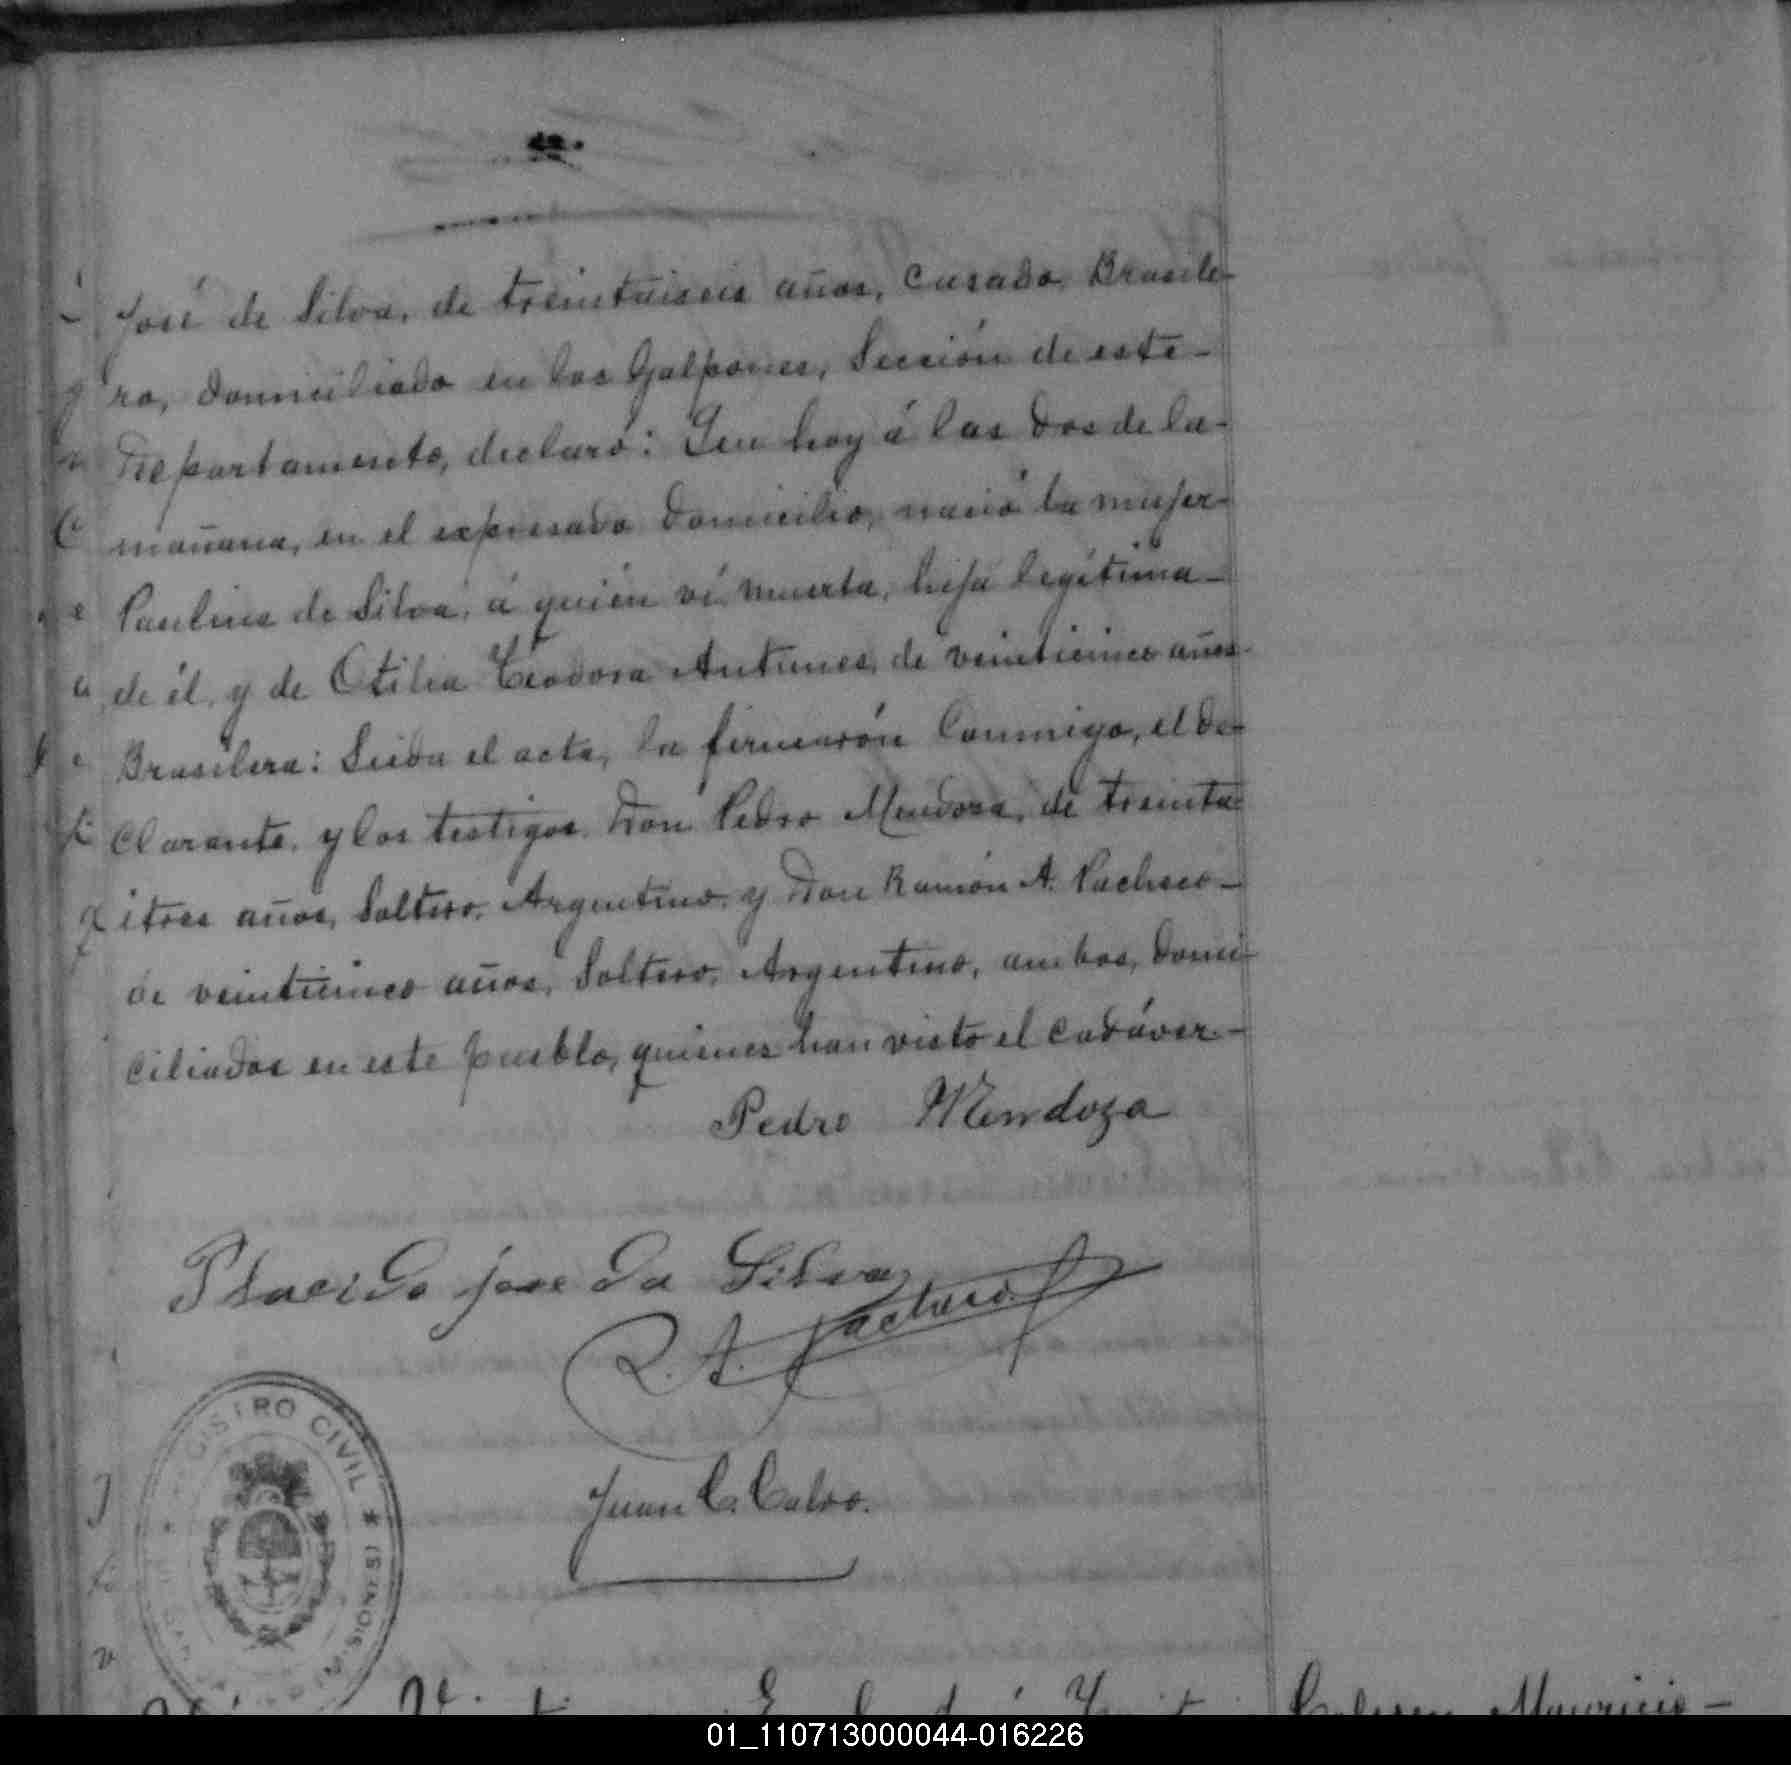 José de Silva, de treintaiseis años, casado, Brasile-
ro, domiciliado en los Galpones, Sección de este-
Departamento, declaró: Que hoy á las dos de la-
mañana, en el expresado domicilio, nació la mujer-
Paulina de Silva, á quién ví muerta, hija legítima-
de él, y de Otilia Teodora Antunes, de veinticinco años-
Brasilera: Leida el acta, la firmarón Conmigo, el de-
clarante, y los testigos Don Pedro Mendosa, de treinta-
itres años, Soltero, Argentino, y Don Ramón A. Pacheco-
de veinticinco años, Soltero, Argentino, ambos, domi-
ciliados en este pueblo, quienes han visto el cadáver.-
Pedro Mendoza
Placido jose da Silva
R. A. Pacheco
Juan C. Calvo.
REGISTRO CIVIL * MISIONES
Mauricio -
01_110713000044-016226